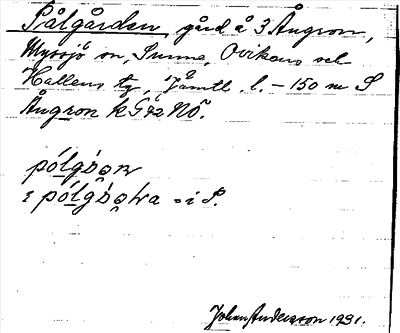 Pålgården gård å 3 Ångron,
Myssjö sn, Sunne, Ovikens och
Hallens tg, Jämtl. l. – 150 m S
Ångron k G 92 NÖ.
pólgó̭ɑ̭n
i pólgó̭ɑ̭ła = i P.
Johan Andersson 1931.